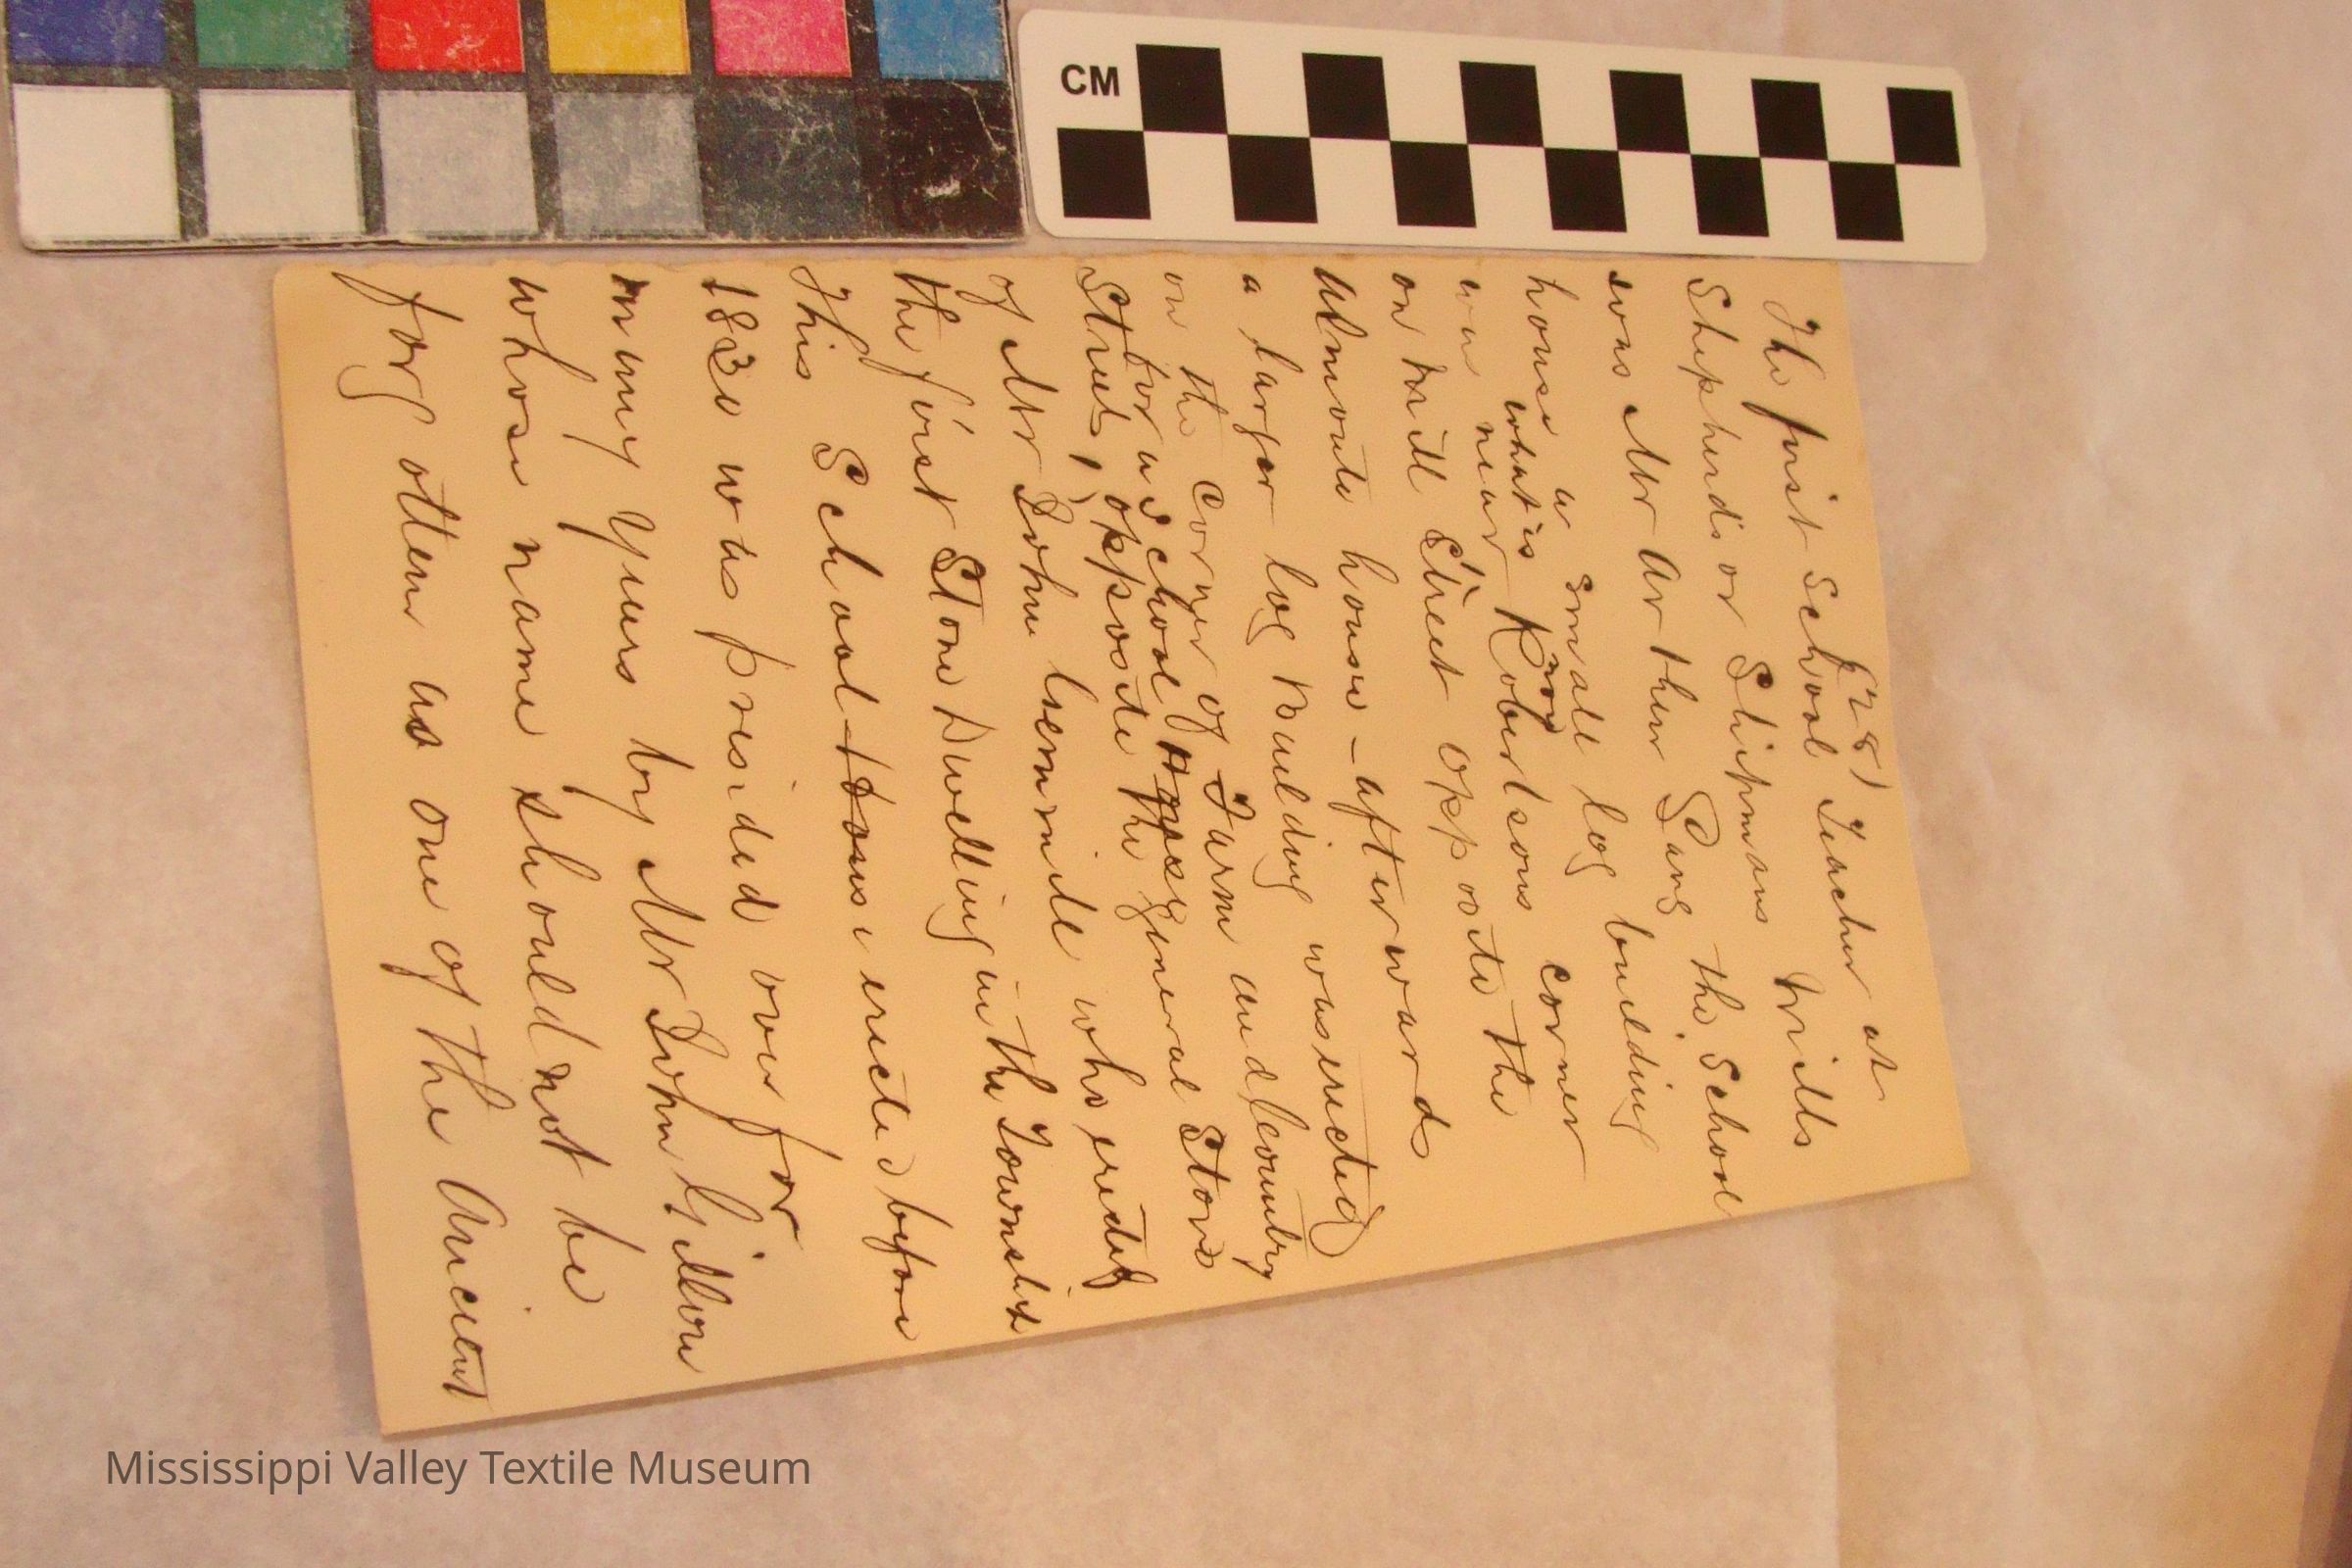 (28)
The first School Teacher at
Shepherds or Shipmans Mills
was Mr Arther Lang the School
house a small log building
was near what is now Robertsons corner
on Mill Street opposite the
Almonte house - afterwards
a larger log Building was erected
on the corner of Farm and Country
Street, for a School opposite the general Store
of Mr John Gemmill who erected
the first Stone Dwelling in the Township
This School house erected before
1830 was presided over for
many years by Mr John Gillon
whose name should not be
forgotten as one of the Ancient
CM
Mississippi Valley Textile Museum